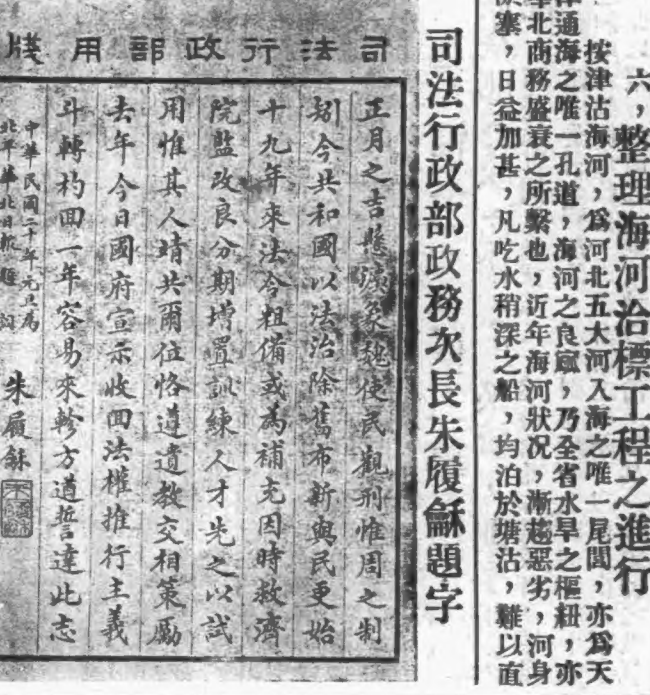 六，整理海河治標工程之進行
按津沽海河，爲河北五大河入海之唯一尾閭，亦爲天
津通海之唯一孔道，海河之良窳，乃全省水旱之樞紐，亦
華北商務盛衰之所繫也，近年海河狀況，漸趨惡劣，河身
塞，日益加甚，凡吃水稍深之船，均泊於塘沽，難以直
司法行政部政務次長朱履龢題字
司法行政部用牋
正月之吉懸法象魏使民觀刑惟周之制
矧今共和國以法治除舊布新與民更始
十九年來法令粗備或為補充因時救濟
院監改良分期增置訓練人才先之以試
用惟其人靖共爾位恪遵遺教交相策勵
去年今日國府宣示收回法權推行主義
斗轉杓回一年容易來軫方遒誓達此志
中華民國二十年元旦為
北平華北日報題詞
朱履龢